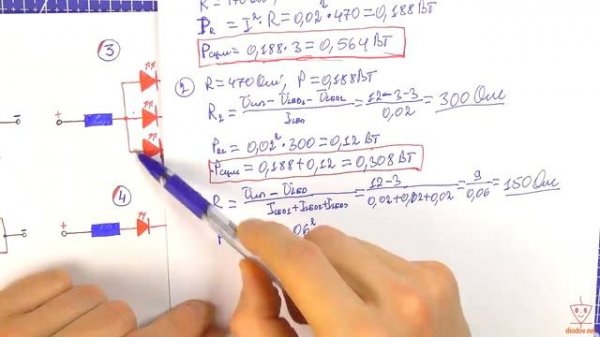 P_R = I² · R = 0,02² · 470 = 0,188 Вт
Pсум = 0,188 · 3 = 0,564 Вт
3
2
R = 470 Ом, P = 0,188 Вт
R₂ = (Uип - U_LED1 - U_LED2) / I_LED = (12 - 3 - 3) / 0,02 = 300 Ом
P_R2 = 0,02² · 300 = 0,12 Вт
Pсум = 0,188 + 0,12 = 0,308 Вт
R = (Uип - U_LED) / (I_LED1 + I_LED2 + I_LED3) = (12 - 3) / (0,02 + 0,02 + 0,02) = 9 / 0,06 = 150 Ом
4
06²
diodov.net